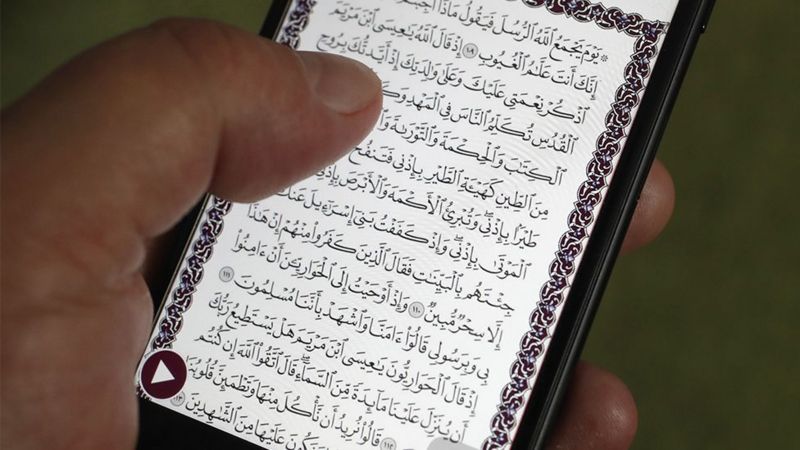 ۞ يَوْمَ يَجْمَعُ ٱللَّهُ ٱلرُّسُلَ فَيَقُولُ مَاذَآ أُجِبْتُمْ
إِنَّكَ أَنتَ عَلَّـٰمُ ٱلْغُيُوبِ ١٠٩ إِذْ قَالَ ٱللَّهُ يَـٰعِيسَى ٱبْنَ مَرْيَمَ
ٱذْكُرْ نِعْمَتِى عَلَيْكَ وَعَلَىٰ وَٰلِدَتِكَ إِذْ أَيَّدتُّكَ بِرُوحِ
ٱلْقُدُسِ تُكَلِّمُ ٱلنَّاسَ فِى ٱلْمَهْدِ
ٱلْكِتَـٰبَ وَٱلْحِكْمَةَ وَٱلتَّوْرَىٰةَ
مِنَ ٱلطِّينِ كَهَيْـَٔةِ ٱلطَّيْرِ بِإِذْنِى فَتَنفُخُ
طَيْرًۢا بِإِذْنِى وَتُبْرِئُ ٱلْأَكْمَهَ وَٱلْأَبْرَصَ بِإِذْنِى
ٱلْمَوْتَىٰ بِإِذْنِى وَإِذْ كَفَفْتُ بَنِىٓ إِسْرَٰٓءِيلَ عَنكَ
جِئْتَهُم بِٱلْبَيِّنَـٰتِ فَقَالَ ٱلَّذِينَ كَفَرُوا۟ مِنْهُمْ إِنْ هَـٰذَآ
إِلَّا سِحْرٌ مُّبِينٌ ١١٠ وَإِذْ أَوْحَيْتُ إِلَى ٱلْحَوَارِيِّـۧنَ أَنْ ءَامِنُوا۟
بِى وَبِرَسُولِى قَالُوٓا۟ ءَامَنَّا وَٱشْهَدْ بِأَنَّنَا مُسْلِمُونَ ١١١
إِذْ قَالَ ٱلْحَوَارِيُّونَ يَـٰعِيسَى ٱبْنَ مَرْيَمَ هَلْ يَسْتَطِيعُ رَبُّكَ
أَن يُنَزِّلَ عَلَيْنَا مَآئِدَةً مِّنَ ٱلسَّمَآءِ قَالَ ٱتَّقُوا۟ ٱللَّهَ إِن كُنتُم
١١٢ قَالُوا۟ نُرِيدُ أَن نَّأْكُلَ مِنْهَا وَتَطْمَئِنَّ قُلُوبُنَا
وَنَكُونَ عَلَيْهَا مِنَ ٱلشَّـٰهِدِينَ ١١٣